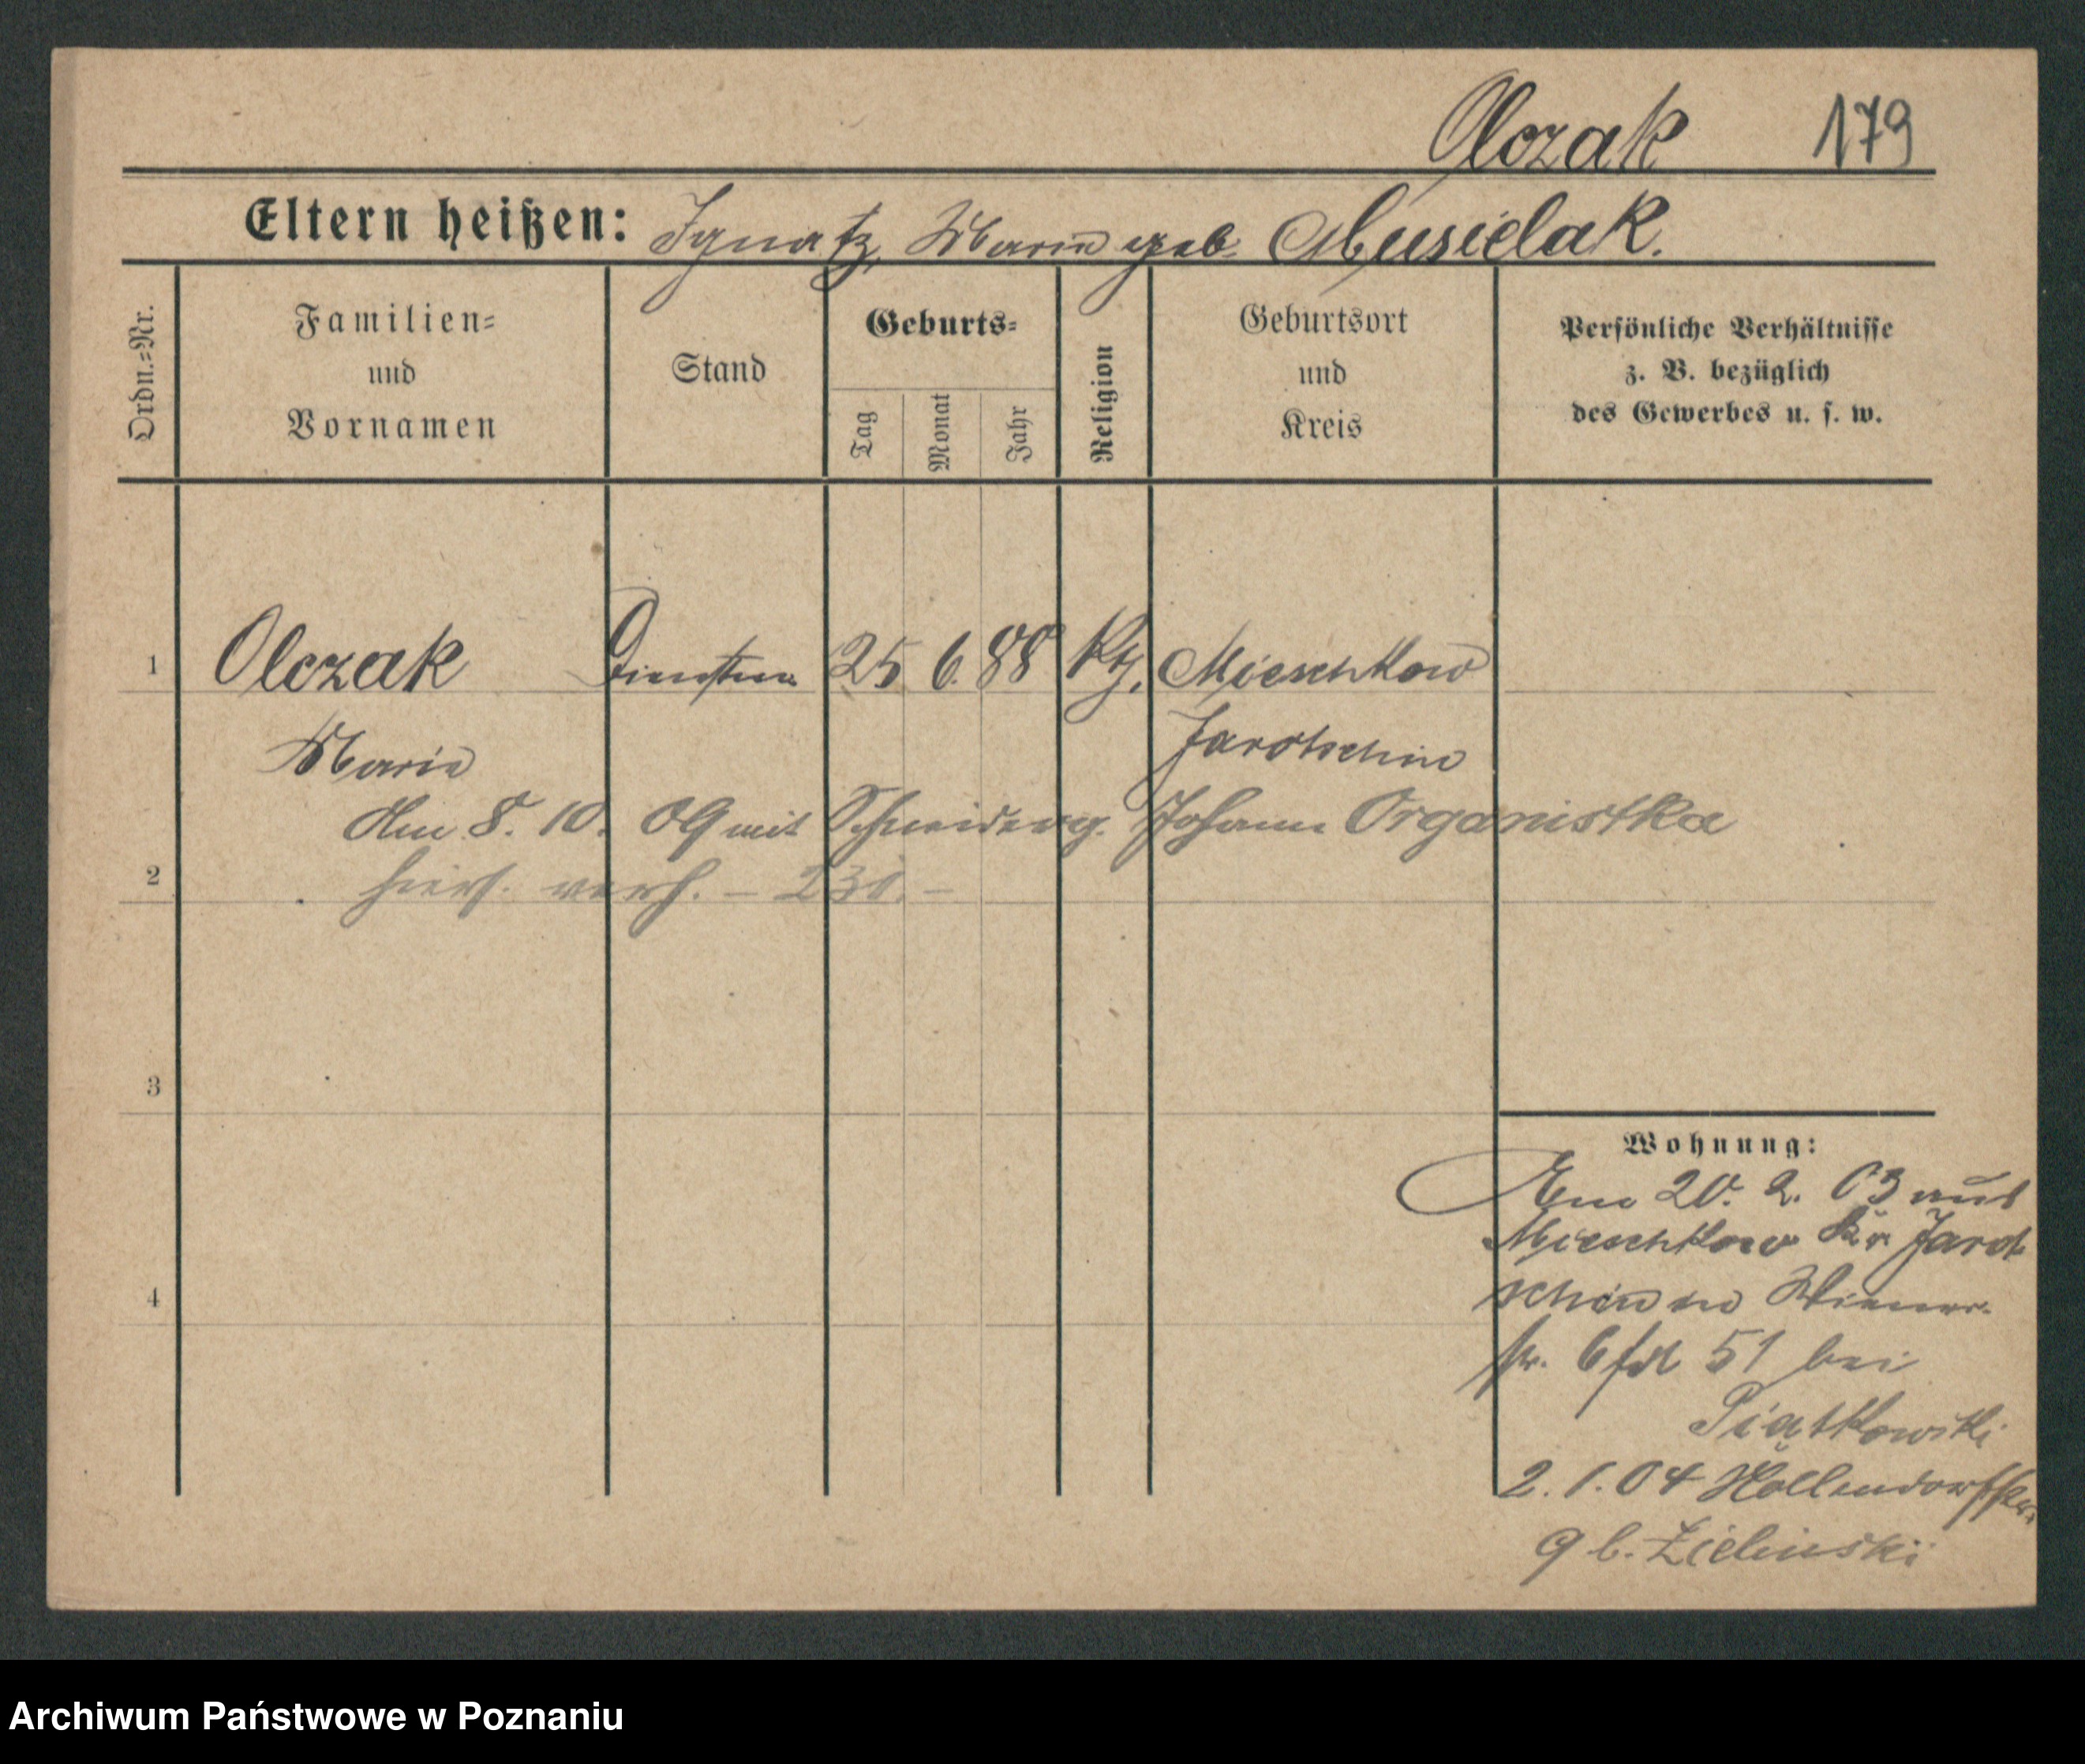 Olczak 179
Eltern heißen: Ignatz, Marie geb. Musielak.
Ordn.=Nr.
Familien=
und
Vornamen
Stand
Geburts=
Tag
Monat
Jahr
Religion
Geburtsort
und
Kreis
Persönliche Verhältnisse
z. B. bezüglich
des Gewerbes u. s. w.
1 Olczak 25 6. 88 Kth. Mieschkow
Marie Jarotschin
Am 8. 10. 09 mit Schneiderg. Johann Organistka
2 hiers. verh. –
3
Wohnung:
20. 2. 03 aus
Mieschkow Kr. Jarot
schin Wiener-
4
str. 51 bei
Piątkowski
2. 1. 04 Hollendorffstr.
9 b. Zielinski
Archiwum Państwowe w Poznaniu